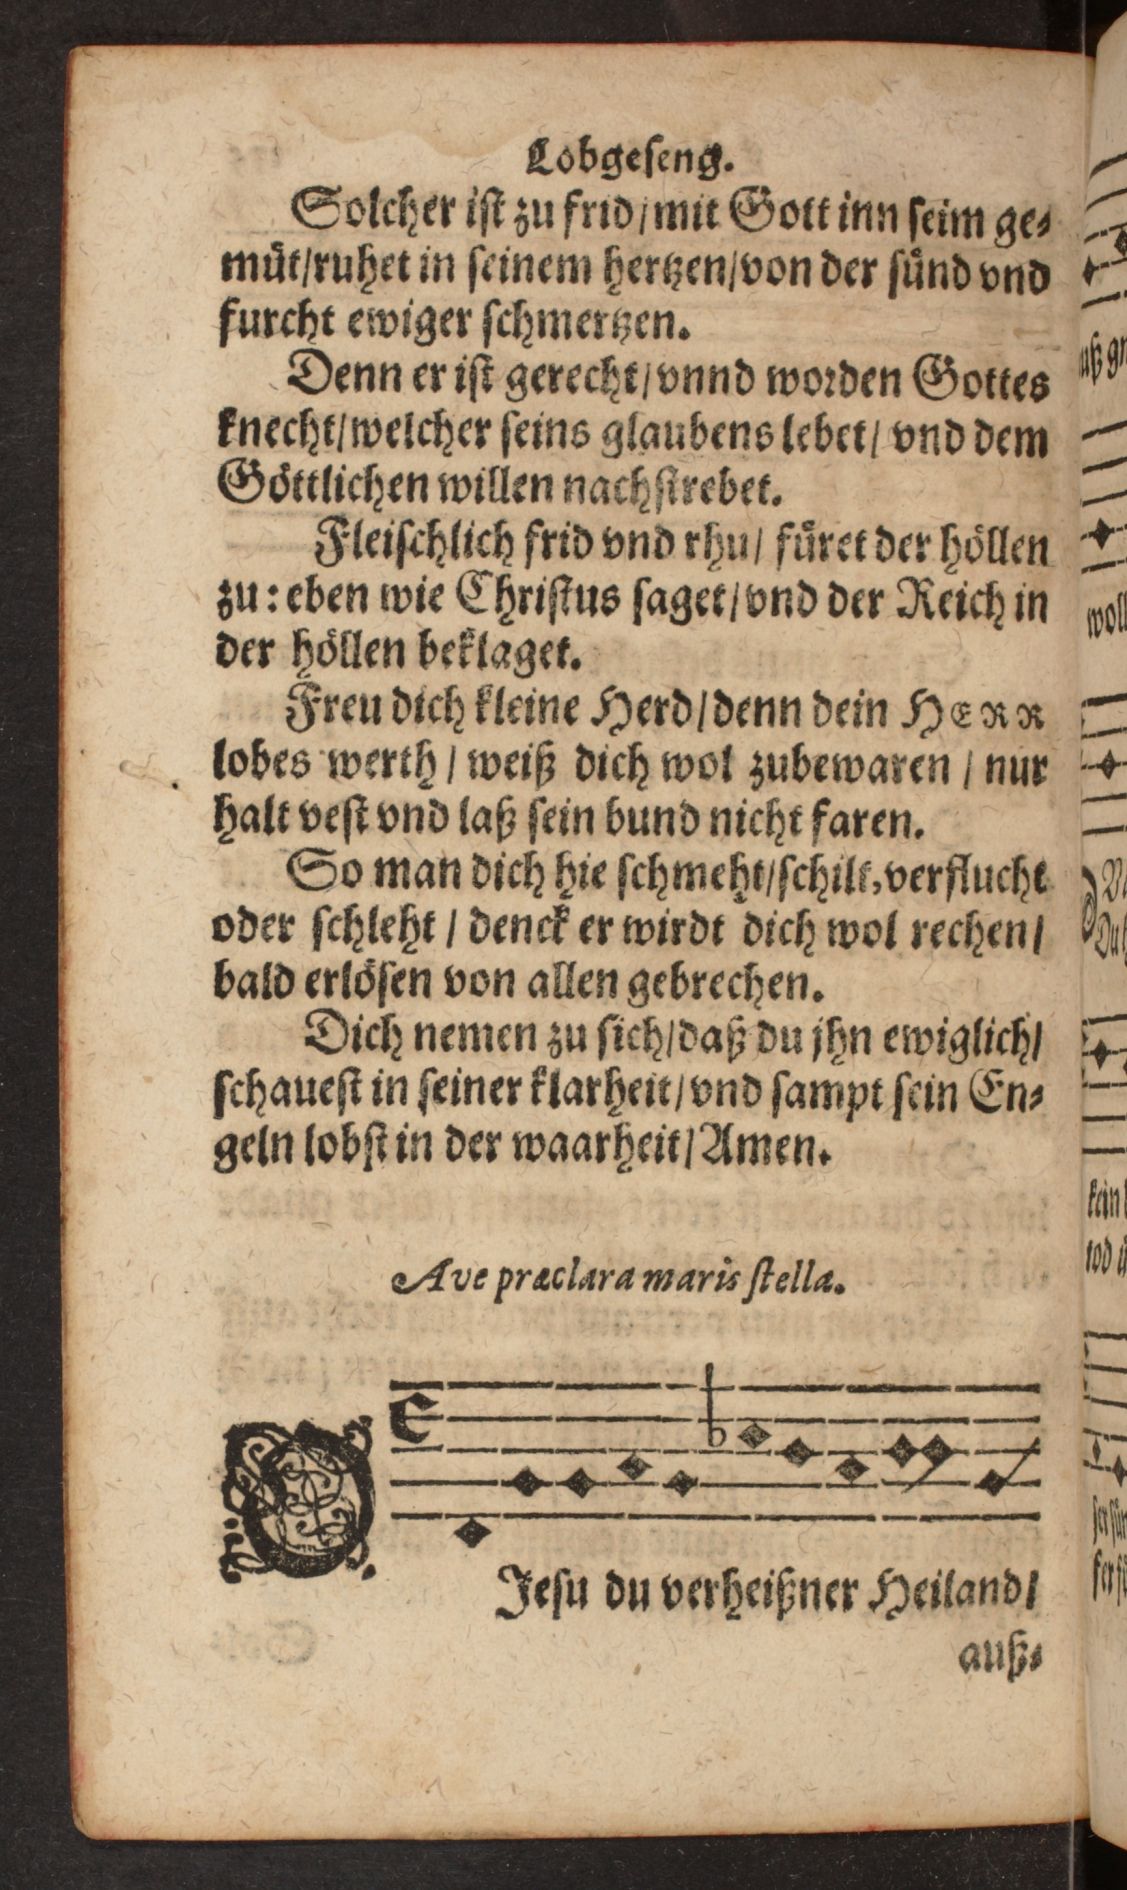 Lobgeseng.
Solcher ist zu frid/mit Gott inn seim ge⸗
müt/ruhet in seinem hertzen/von der sünd vnd
furcht ewiger schmertzen.
Denn er ist gerecht/vnnd worden Gottes
knecht/welcher seins glaubens lebet/ vnd dem
Göttlichen willen nachstrebet.
Fleischlich frid vnd rhu/ füret der höllen
zu: eben wie Christus saget/vnd der Reich in
der höllen beklaget.
Freu dich kleine Herd/denn dein HERR
lobes werth/ weiß dich wol zubewaren/ nur
halt vest vnd laß sein bund nicht faren.
So man dich hie schmeht/schilt, verflucht
oder schleht/ denck er wirdt dich wol rechen/
bald erlösen von allen gebrechen.
Dich nemen zu sich/daß du jhn ewiglich/
schauest in seiner klarheit/vnd sampt sein En⸗
geln lobst in der waarheit/Amen.
Ave præclara maris stella.
O
Jesu du verheißner Heiland/
auß⸗